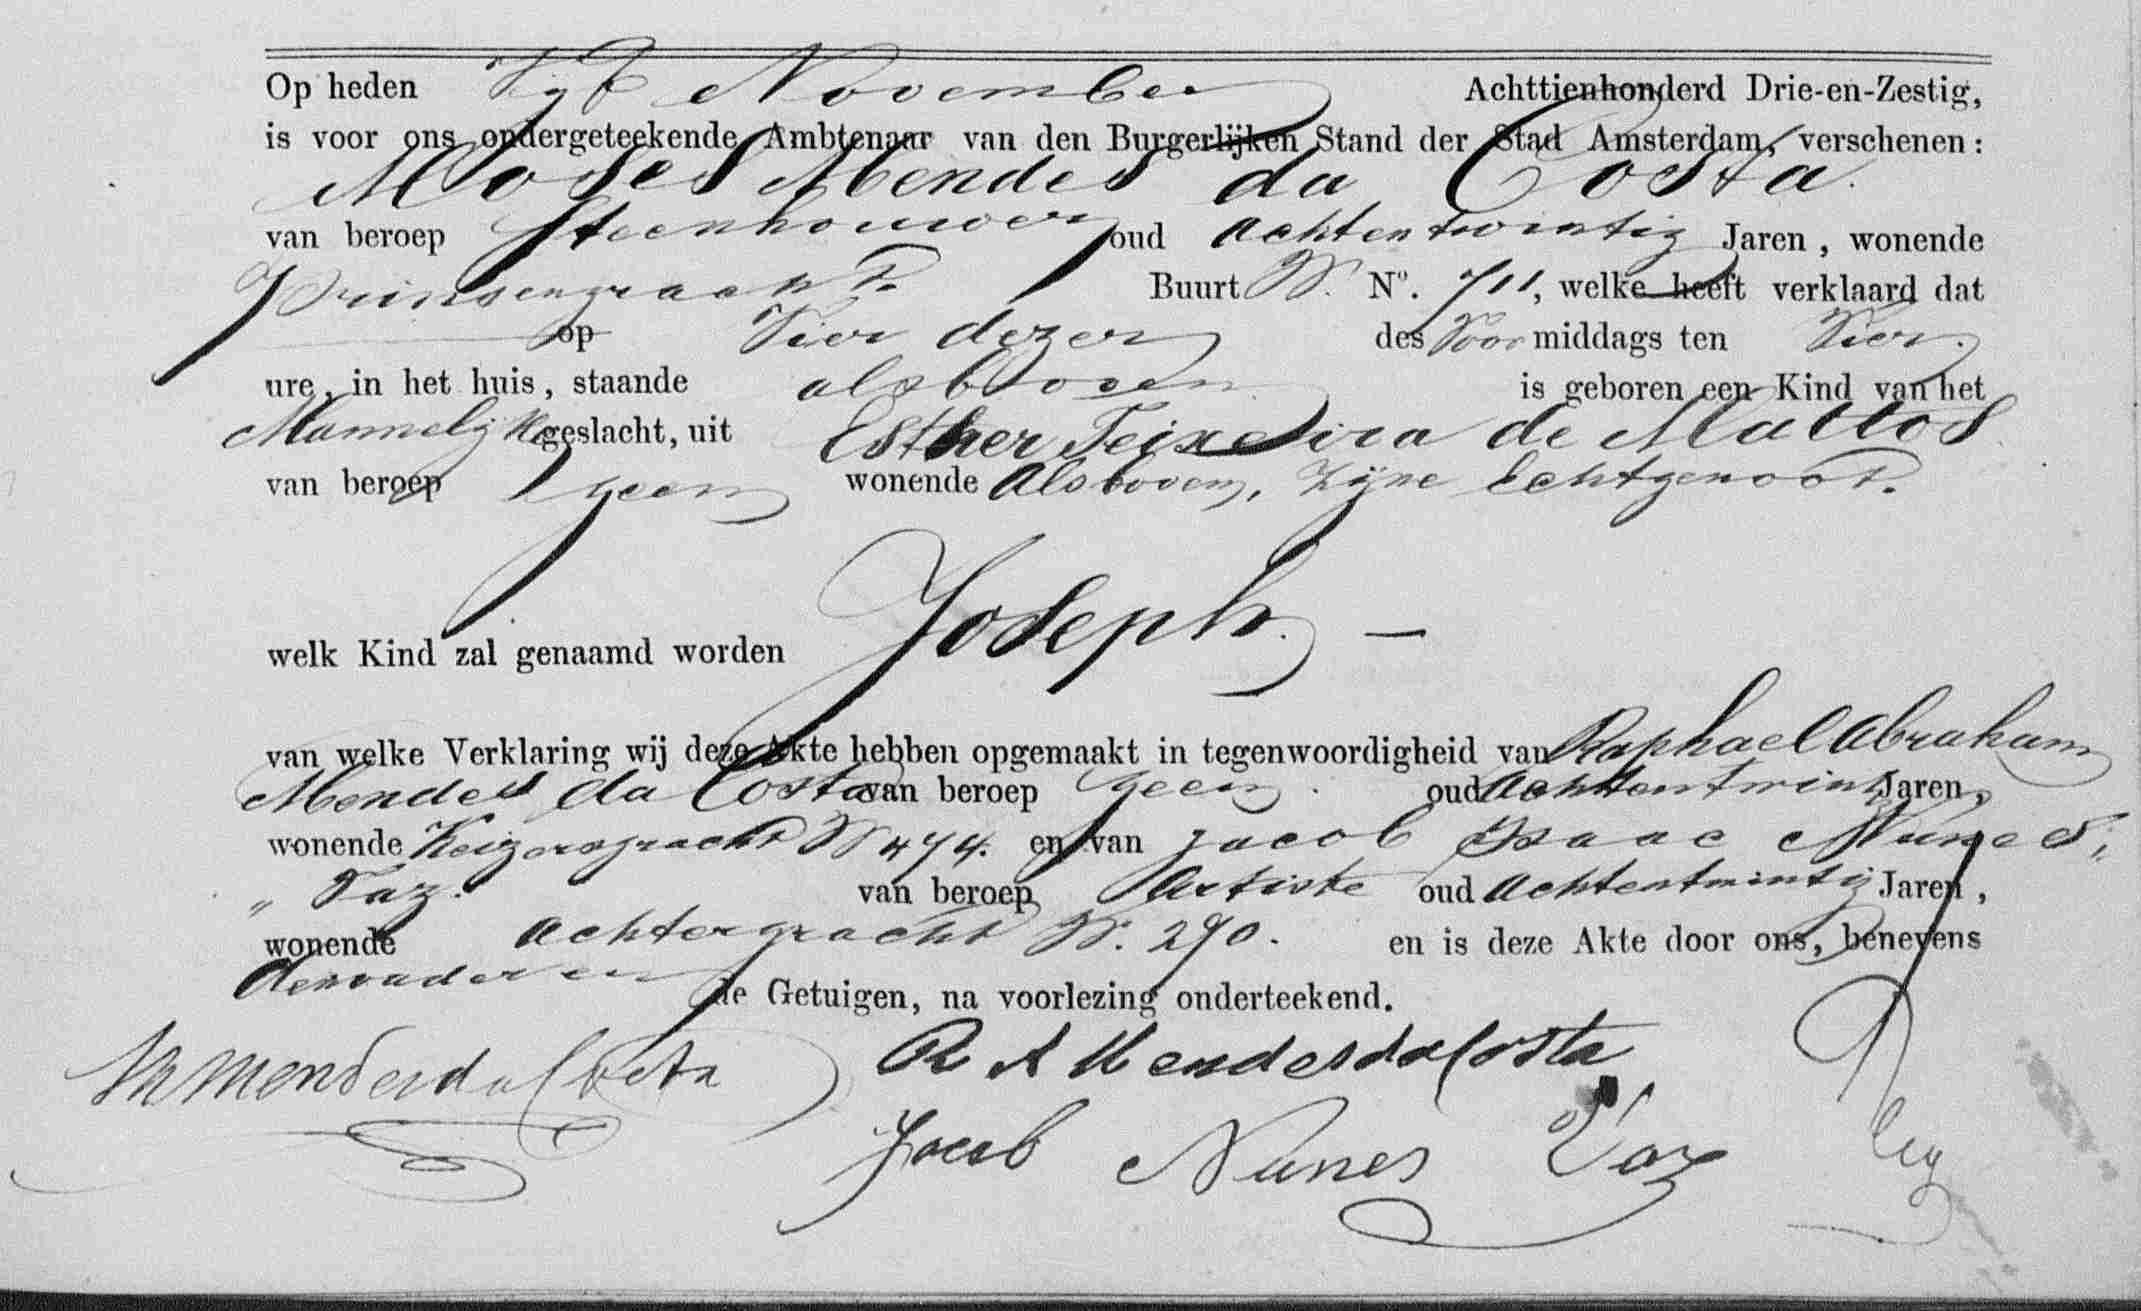 Op heden Vijf November Achttienhonderd Drie-en-Zestig,
is voor ons ondergeteekende Ambtenaar van den Burgerlijken Stand der Stad Amsterdam, verschenen:
Moses Mendes da Costa
van beroep Steenhouwer oud achtentwintig Jaren, wonende
Prinsengracht Buurt W. No. 711, welke heeft verklaard dat
op Vier dezer des Voor middags ten Vier
ure, in het huis, staande alsboven is geboren een Kind van het
Mannelijk geslacht, uit Esther Teixeira de Mattos
van beroep geen wonende Alsboven, Zijne Echtgenoot.
welk Kind zal genaamd worden Joseph. —
van welke Verklaring wij deze Akte hebben opgemaakt in tegenwoordigheid van Raphael Abraham
Mendes da Costa van beroep geen oud achtentwintig Jaren,
wonende Keizersgracht W 474. en van Jacob Isaac Nunes,
„ Vaz. van beroep Artiste oud achtentwintig Jaren,
wonende Achtergracht W. 290. en is deze Akte door ons, benevens
den vader en de Getuigen, na voorlezing onderteekend.
M Mendes da Costa R A Mendes da Costa
Jacob Nunes Vaz